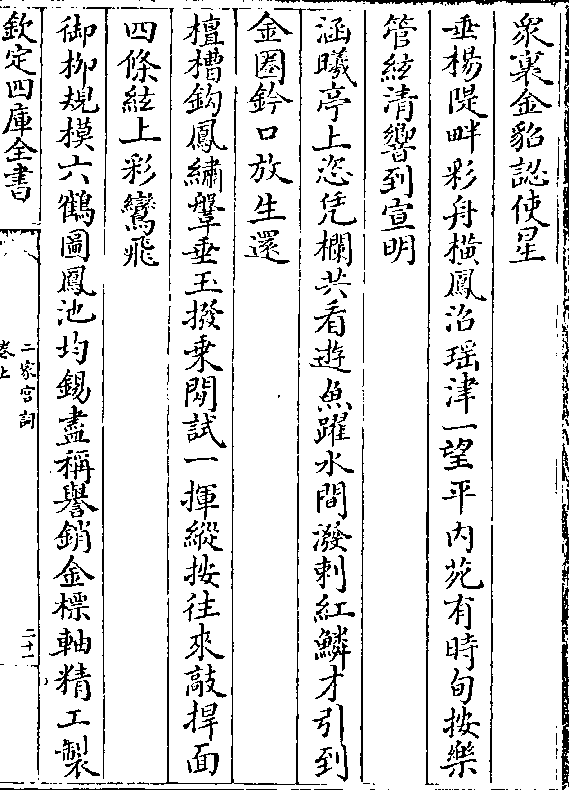 衆裏金貂認使星
垂楊隄畔彩舟橫鳳沼瑶津一望平内苑有時旬按樂
管絃清響到宣明
涵曦亭上恣凭欄共看遊魚躍水間潑剌紅鱗才引到
金圈鈐口放生還
檀槽鈎鳳繡鞶垂玉撥乗閒試一揮縱按往來敲捍面
四條絃上彩鸞飛
御柳規模六鶴圖鳳池均錫盡稱譽銷金標軸精工製
欽定四庫全書
二家宫詞
卷上
二十一